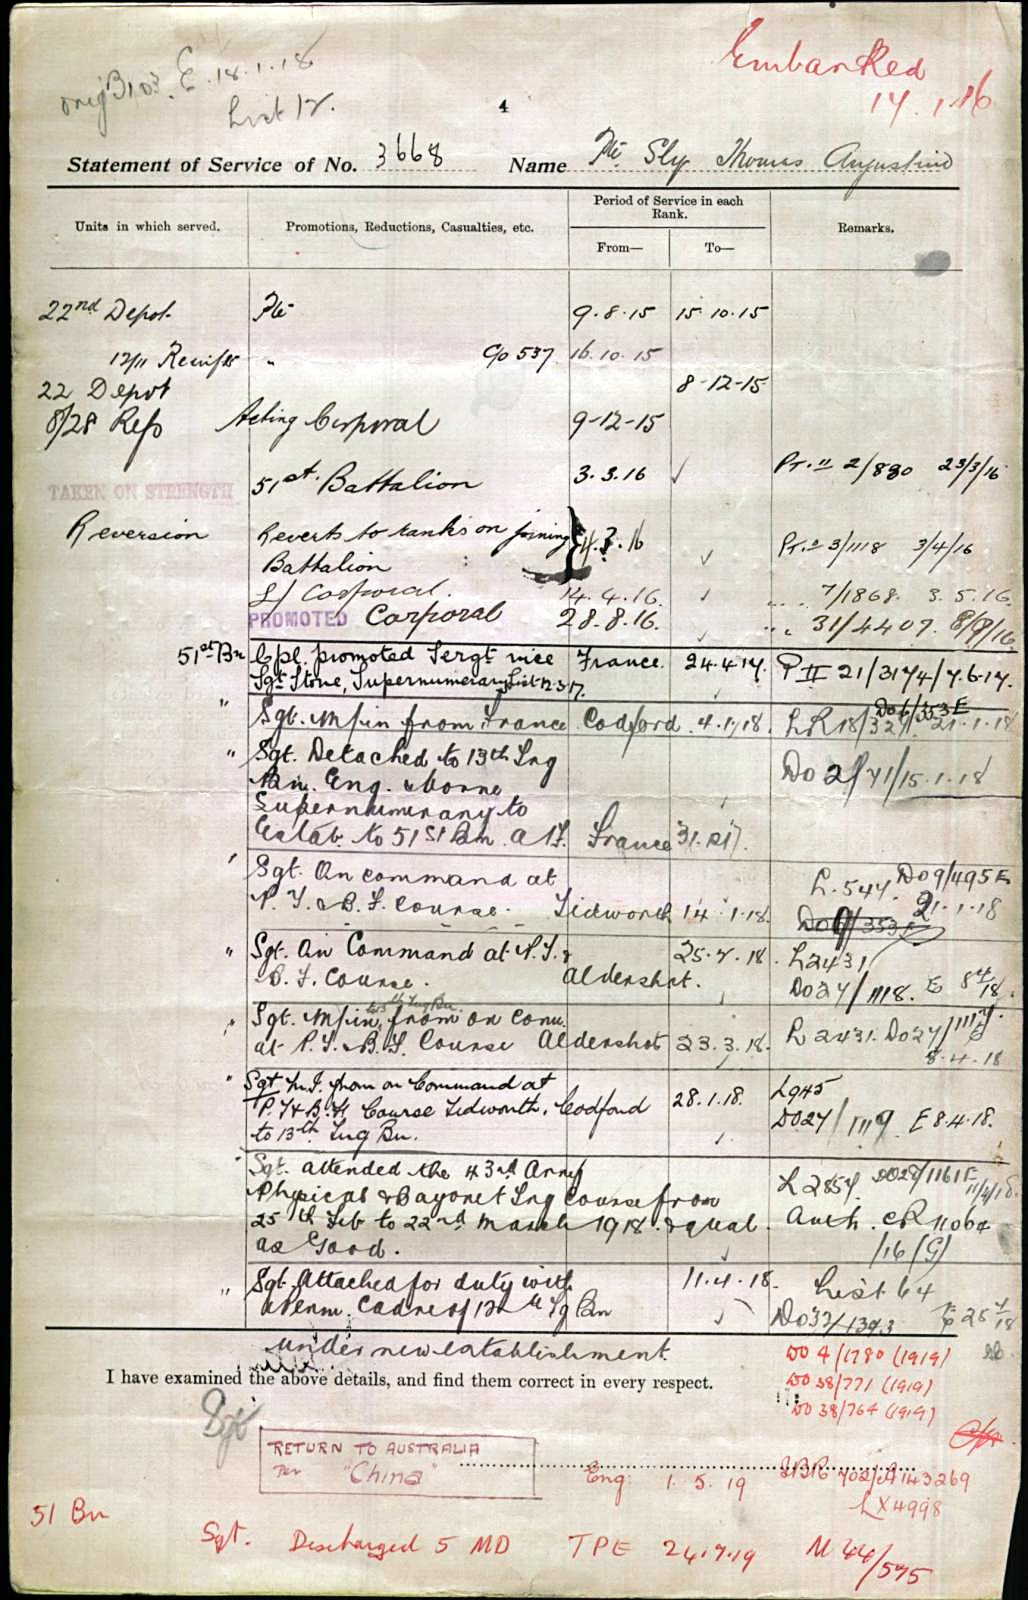 Embarked
14.1.16
orig B103. E. 18.1.18
List 12.
4
Statement of Service of No. 3668 Name Pte. Sly Thomas Augustine
Units in which served. Promotions, Reductions, Casualties, etc. Period of Service in each Rank. Remarks.
From— To—
22nd Depot Pte 9.8.15 15.10.15
12/11 Reinf " C/o 537 16.10.15
22 Depot 8-12-15
8/28 Refs Acting Corporal 9-12-15
TAKEN ON STRENGTH 51st. Battalion 3.3.16 Pt. II 2/880 23/3/16
Reversion Reverts to ranks on joining 4.3.16 Pt. II 3/1118 3/4/16
Battalion
L/ Corporal. 14.4.16. " " 7/1868. 3.5.16.
PROMOTED Corporal 28.8.16. " " 31/4407. 8/9/16
51st Bn Cpl. promoted Sergt vice France. 24.4.17. P II 21/3174/7.6.17.
Sgt Stone, Supernumerary List 12.3.17.
" Sgt. M/in from France Codford. 4.1.18. LR 18/321 DO6/353E 21.1.18
" Sgt. Detached to 13th Trng DO 2/71/15.1.18
Bn. Eng. & borne
Supernumerary to
Estab. to 51st Bn. A.I.F. France 31.12.17.
" Sgt. On command at L.544. DO9/495E
P.T. & B.F. Course. Tidworth 14.1.18. 21.1.18
DO6/353E
" Sgt. On Command at P.T. & 25.2.18. L2431
B.F. Course. Aldershot. DO27/1118. E 8/4/18.
" Sgt. M/in from on Com. L 2431. DO27/1117.
at P.T. & B.F. Course Aldershot 23.3.18. E 8.4.18
" Sgt M.I. from on Command at 28.1.18. L945
P.T. & B.F. Course Tidworth. Codford DO27/1119. E 8.4.18.
to 13th Trng Bn.
" Sgt. attended the 43rd Army L 2857. DO28/1161E 11/4/18.
Physical & Bayonet Trng Course from
25th Feb to 22nd March 1918. & qual. Auth. CR 11064
as Good. /16 (G)
" Sgt. Attached for duty with 11.4.18. List 64
Perm. Cadre of 13th Tg Bn DO32/1343 E 25/4/18
under new establishment. DO 4/1780 (1919)
I have examined the above details, and find them correct in every respect.
DO 38/771 (1919)
DO 38/764 (1919)
Sgt.
RETURN TO AUSTRALIA
Per "China" Eng. 1.5.19 702/A143269
LX4998
51 Bn
Sgt. Discharged 5 MD TPE 24.7.19 M 44/575